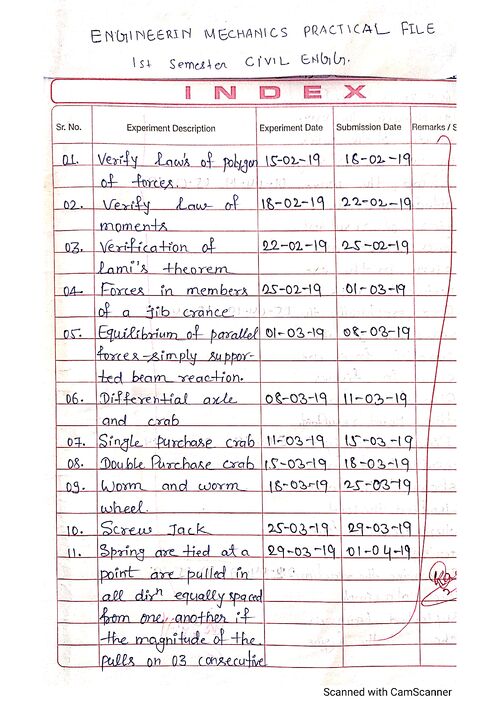 ENGINEERIN MECHANICS PRACTICAL FILE
1st Semester CIVIL ENGG.
INDEX
Sr. No. Experiment Description Experiment Date Submission Date Remarks / S
01. Verify Law's of polygon 15-02-19 18-02-19
of forces.
02. Verify Law of 18-02-19 22-02-19
moments
03. Verification of 22-02-19 25-02-19
Lami's theorem
04. Forces in members 25-02-19 01-03-19
of a jib crance
05. Equilibrium of parallel 01-03-19 08-03-19
forces-simply suppor-
ted beam reaction.
06. Differential axle 08-03-19 11-03-19
and crab
07. Single purchase crab 11-03-19 15-03-19
08. Double Purchase crab 15-03-19 18-03-19
09. Worm and worm 18-03-19 25-03-19
wheel.
10. Screw Jack 25-03-19 29-03-19
11. Spring are tied at a 29-03-19 01-04-19
point are pulled in
all dirn equally spaced
from one another if
the magnitude of the
pulls on 03 consecutive
Scanned with CamScanner